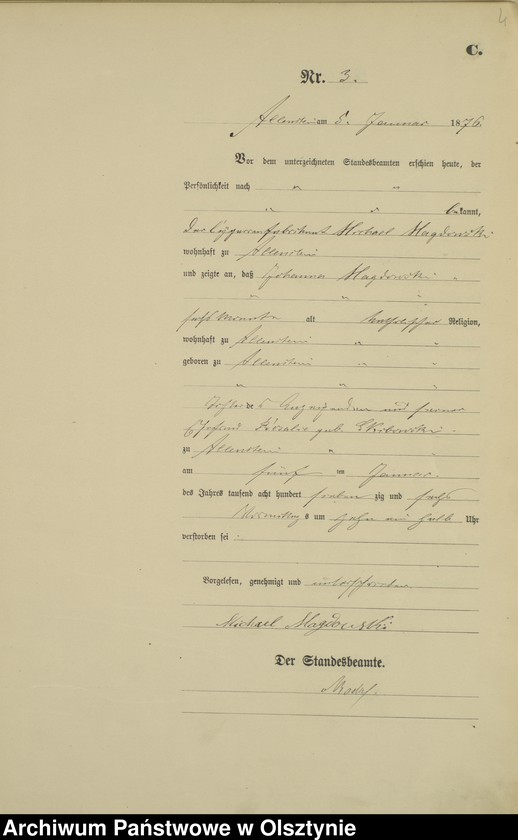 4
C.
Nr. 3.
Allenstein am 5. Januar 1876.
Vor dem unterzeichneten Standesbeamten erschien heute, der
Persönlichkeit nach " "
" " bekannt,
der Cigarrenfabrikant Michael Magdowski
wohnhaft zu Allenstein
und zeigte an, daß Johanna Magdowski
" " "
sechs Monate alt katholischer Religion,
wohnhaft zu Allenstein " "
geboren zu Allenstein " "
" " "
Tochter des Anzeigenden und seiner
Ehefrau geb.
zu Allenstein " "
am fünf ten Januar
des Jahres tausend acht hundert sieben zig und sechs
Vormittags um zehn ein halb Uhr
verstorben sei
Vorgelesen, genehmigt und unterschrieben
Michael Magdowski
Der Standesbeamte.
Archiwum Państwowe w Olsztynie